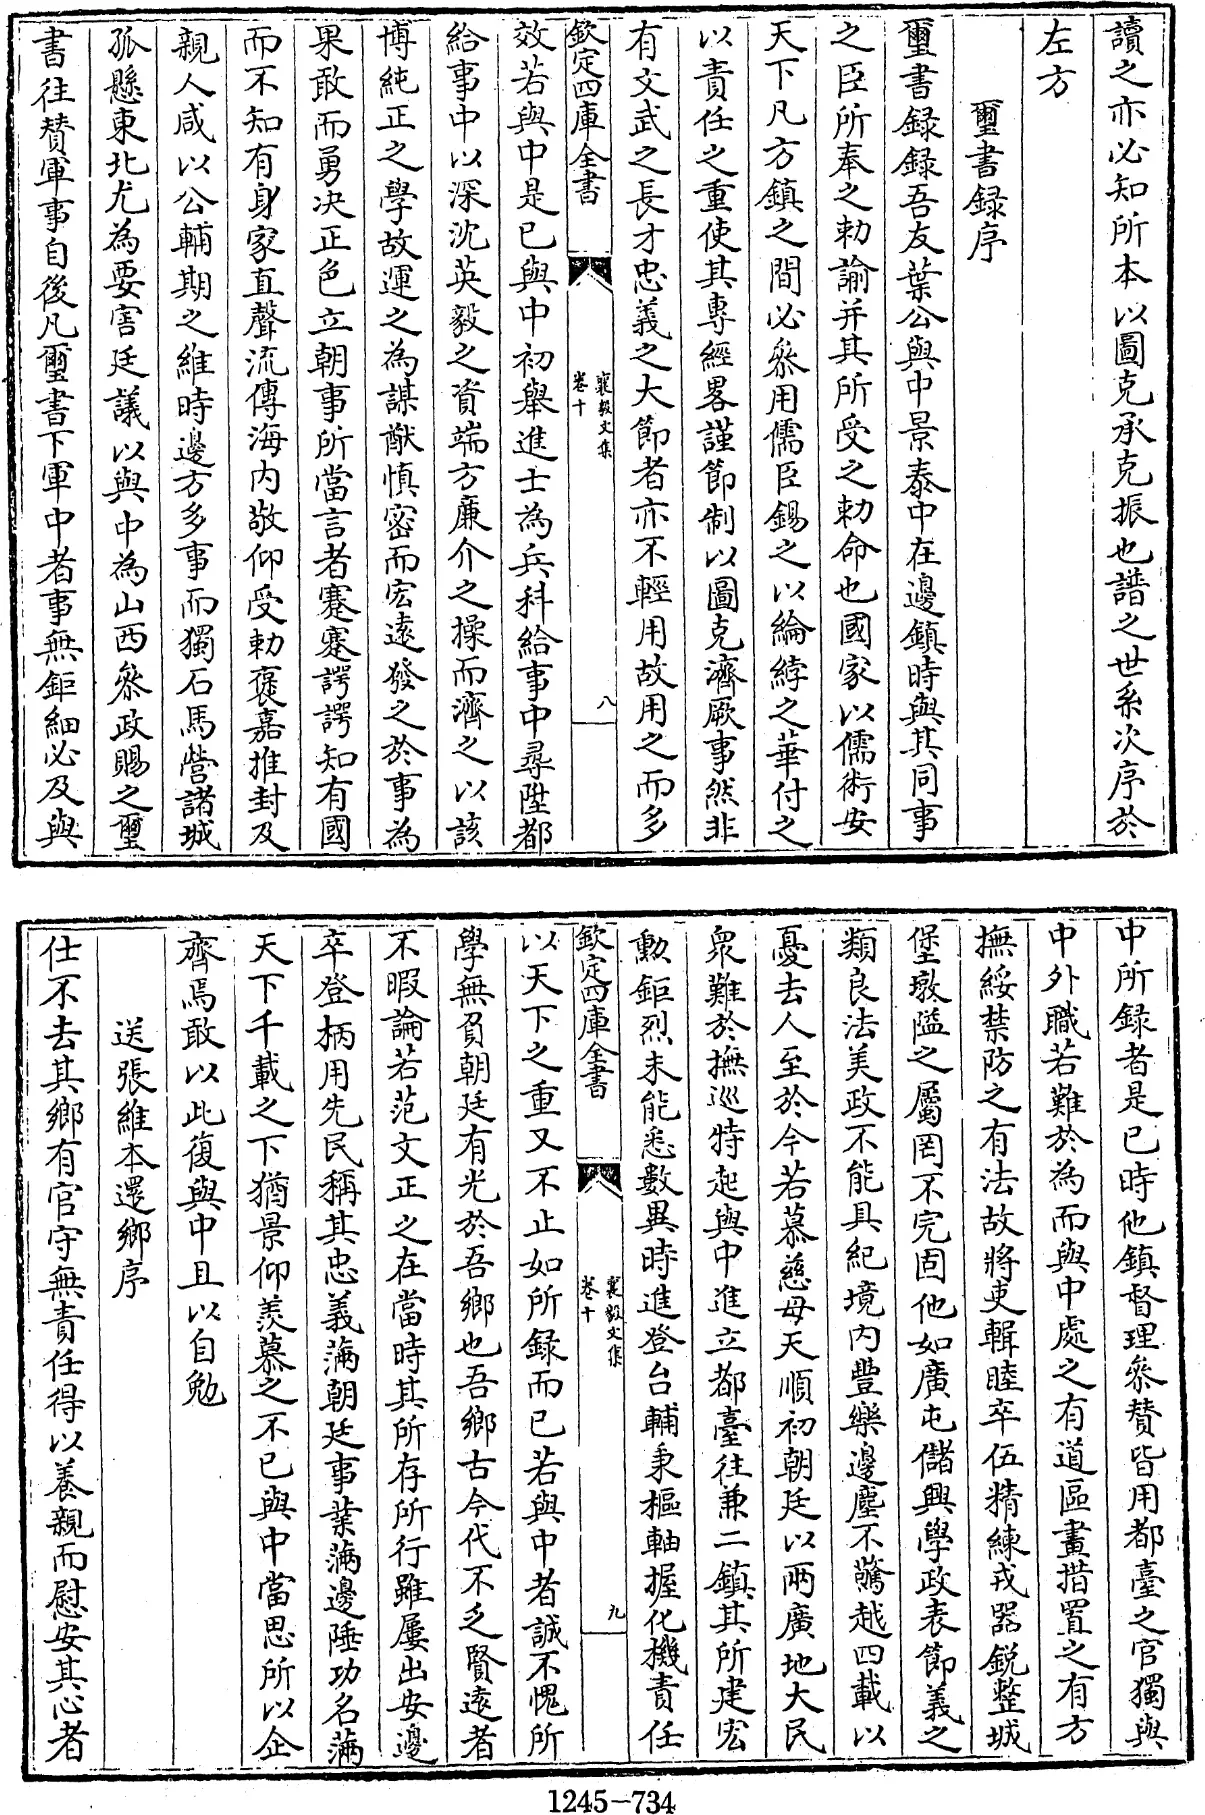 讀之亦必知所本以圖克承克振也譜之世系次序於
左方
璽書録序
璽書録録吾友葉公與中景泰中在邊鎮時與其同事
之臣所奉之勅諭并其所受之勅命也國家以儒術安
天下凡方鎮之間必叅用儒臣錫之以綸綍之華付之
以責任之重使其專經畧謹節制以圖克濟厥事然非
有文武之長才忠義之大節者亦不輕用故用之而多
欽定四庫全書
襄毅文集
卷十
八
效若與中是已與中初舉進士為兵科給事中尋陞都
給事中以深沈英毅之資端方廉介之操而濟之以該
博純正之學故運之為謀猷慎密而宏遠發之於事為
果敢而勇决正色立朝事所當言者蹇蹇諤諤知有國
而不知有身家直聲流傳海内敬仰受勅褒嘉推封及
親人咸以公輔期之維時邊方多事而獨石馬營諸城
孤懸東北尤為要害廷議以與中為山西叅政賜之璽
書往賛軍事自後凡璽書下軍中者事無鉅細必及與
中所録者是已時他鎮督理叅賛皆用都臺之官獨與
中外職若難於為而與中處之有道區畫措置之有方
撫綏禁防之有法故將吏輯睦卒伍精練戎器鋭整城
堡墩隘之屬罔不完固他如廣屯儲興學政表節義之
類良法美政不能具紀境内豐樂邊塵不驚越四載以
憂去人至於今若慕慈母天順初朝廷以兩廣地大民
衆難於撫巡特起與中進立都臺往兼二鎮其所建宏
勲鉅烈未能悉數異時進登台輔秉樞軸握化機責任
欽定四庫全書
襄毅文集
卷十
九
以天下之重又不止如所録而已若與中者誠不愧所
學無負朝廷有光於吾鄉也吾鄉古今代不乏賢遠者
不暇論若范文正之在當時其所存所行雖屢出安邊
卒登柄用先民稱其忠義滿朝廷事業滿邊陲功名滿
天下千載之下猶景仰羨慕之不已與中當思所以企
齊焉敢以此復與中且以自勉
送張維本還鄉序
仕不去其鄉有官守無責任得以養親而慰安其心者
1245-734